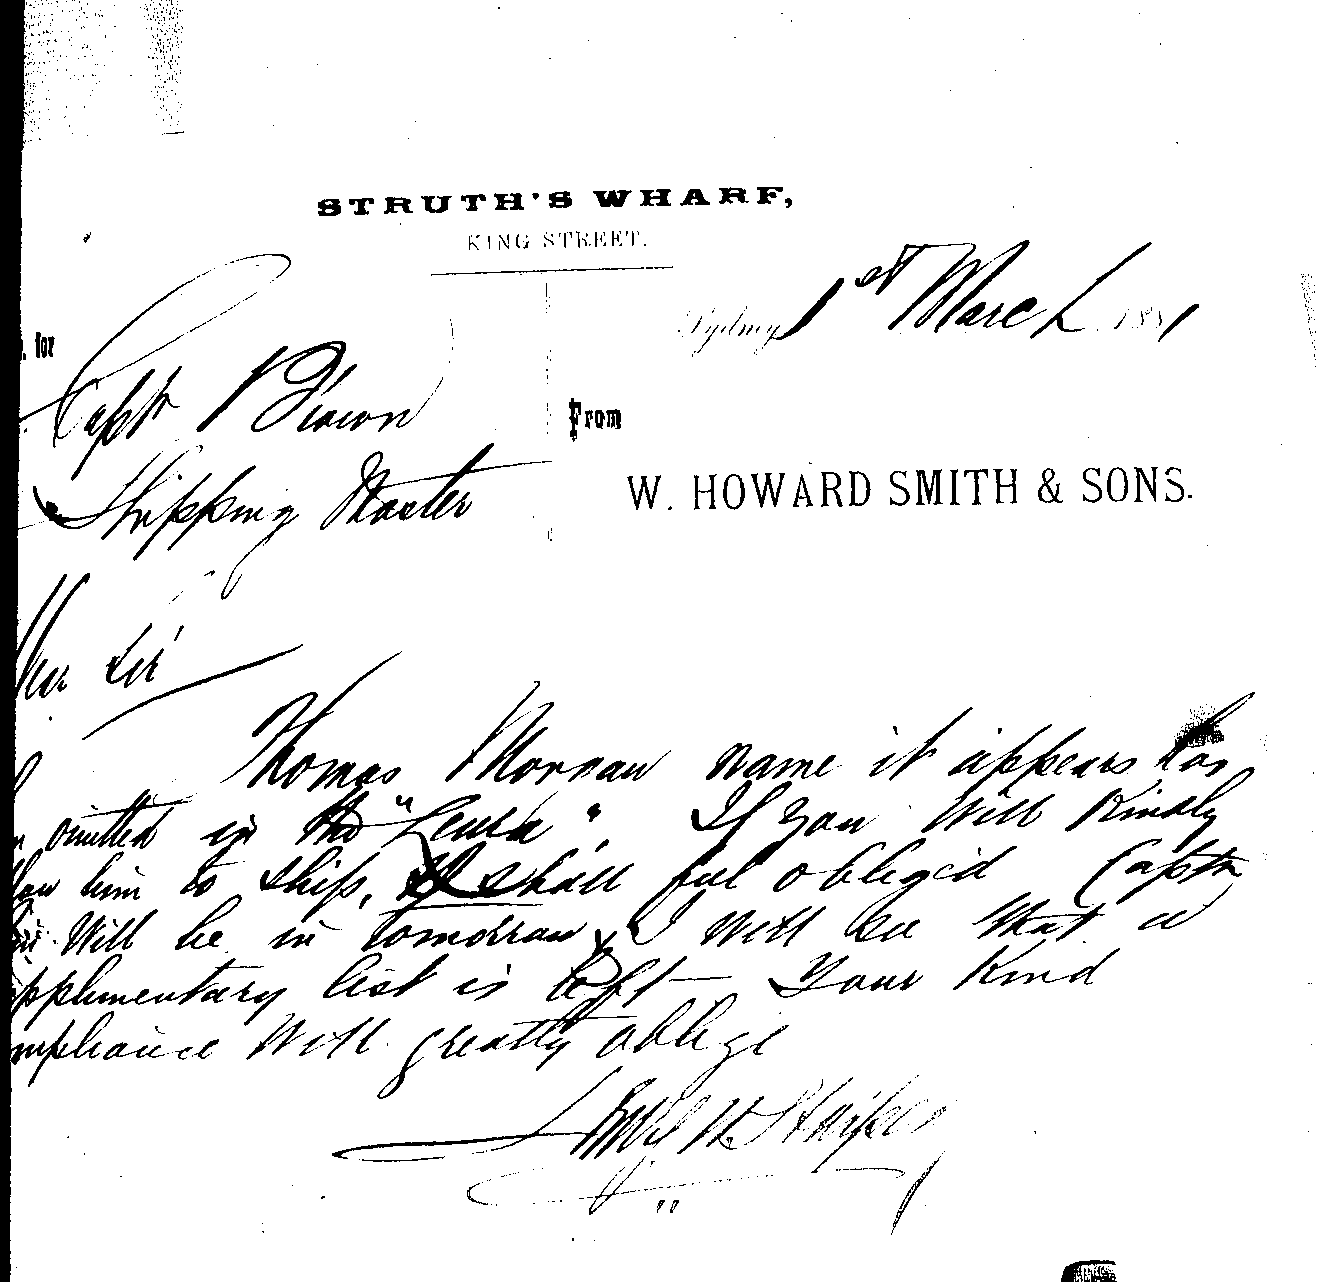 STRUTH'S WHARF,
KING STREET.
Sydney 1st March 1881
. for
Captn Brown
From
Shipping Master
W. HOWARD SMITH & SONS.
Sir
Thomas name it appears has
omitted in the "Leura". If you will Kindly
him to ship, I shall feel obliged Captn
Will be in tomorrow & I will see that a
pplimentary list is left — Your Kind
mpliance Will greatly oblige